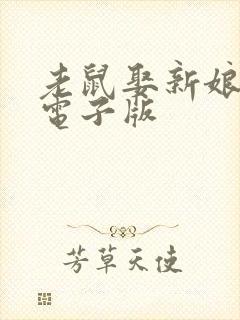 老鼠娶新娘
電子版
芳草天使